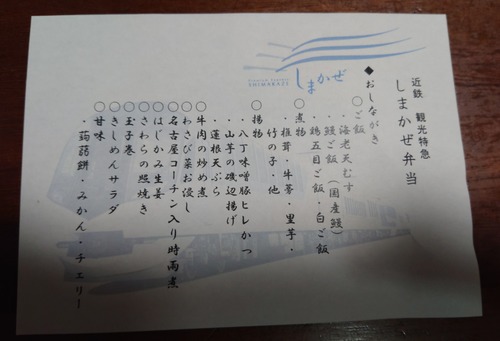 しまかぜ
SHIMAKAZE
近鉄 観光特急
しまかぜ弁当
◆おしながき
○ご飯
・海老天むす
・鰻ご飯(国産鰻)
・鶏五目ご飯・白ご飯
○煮物
・椎茸・牛蒡・里芋・
竹の子・他
○揚物
・八丁味噌豚ヒレかつ
・山芋の磯辺揚げ
・蓮根天ぷら
○牛肉の炒め煮
○わさび菜お浸し
○名古屋コーチン入り時雨煮
○はじかみ生姜
○さわらの照焼き
○玉子巻
○きしめんサラダ
○甘味
・蒟蒻餅・みかん・チェリー